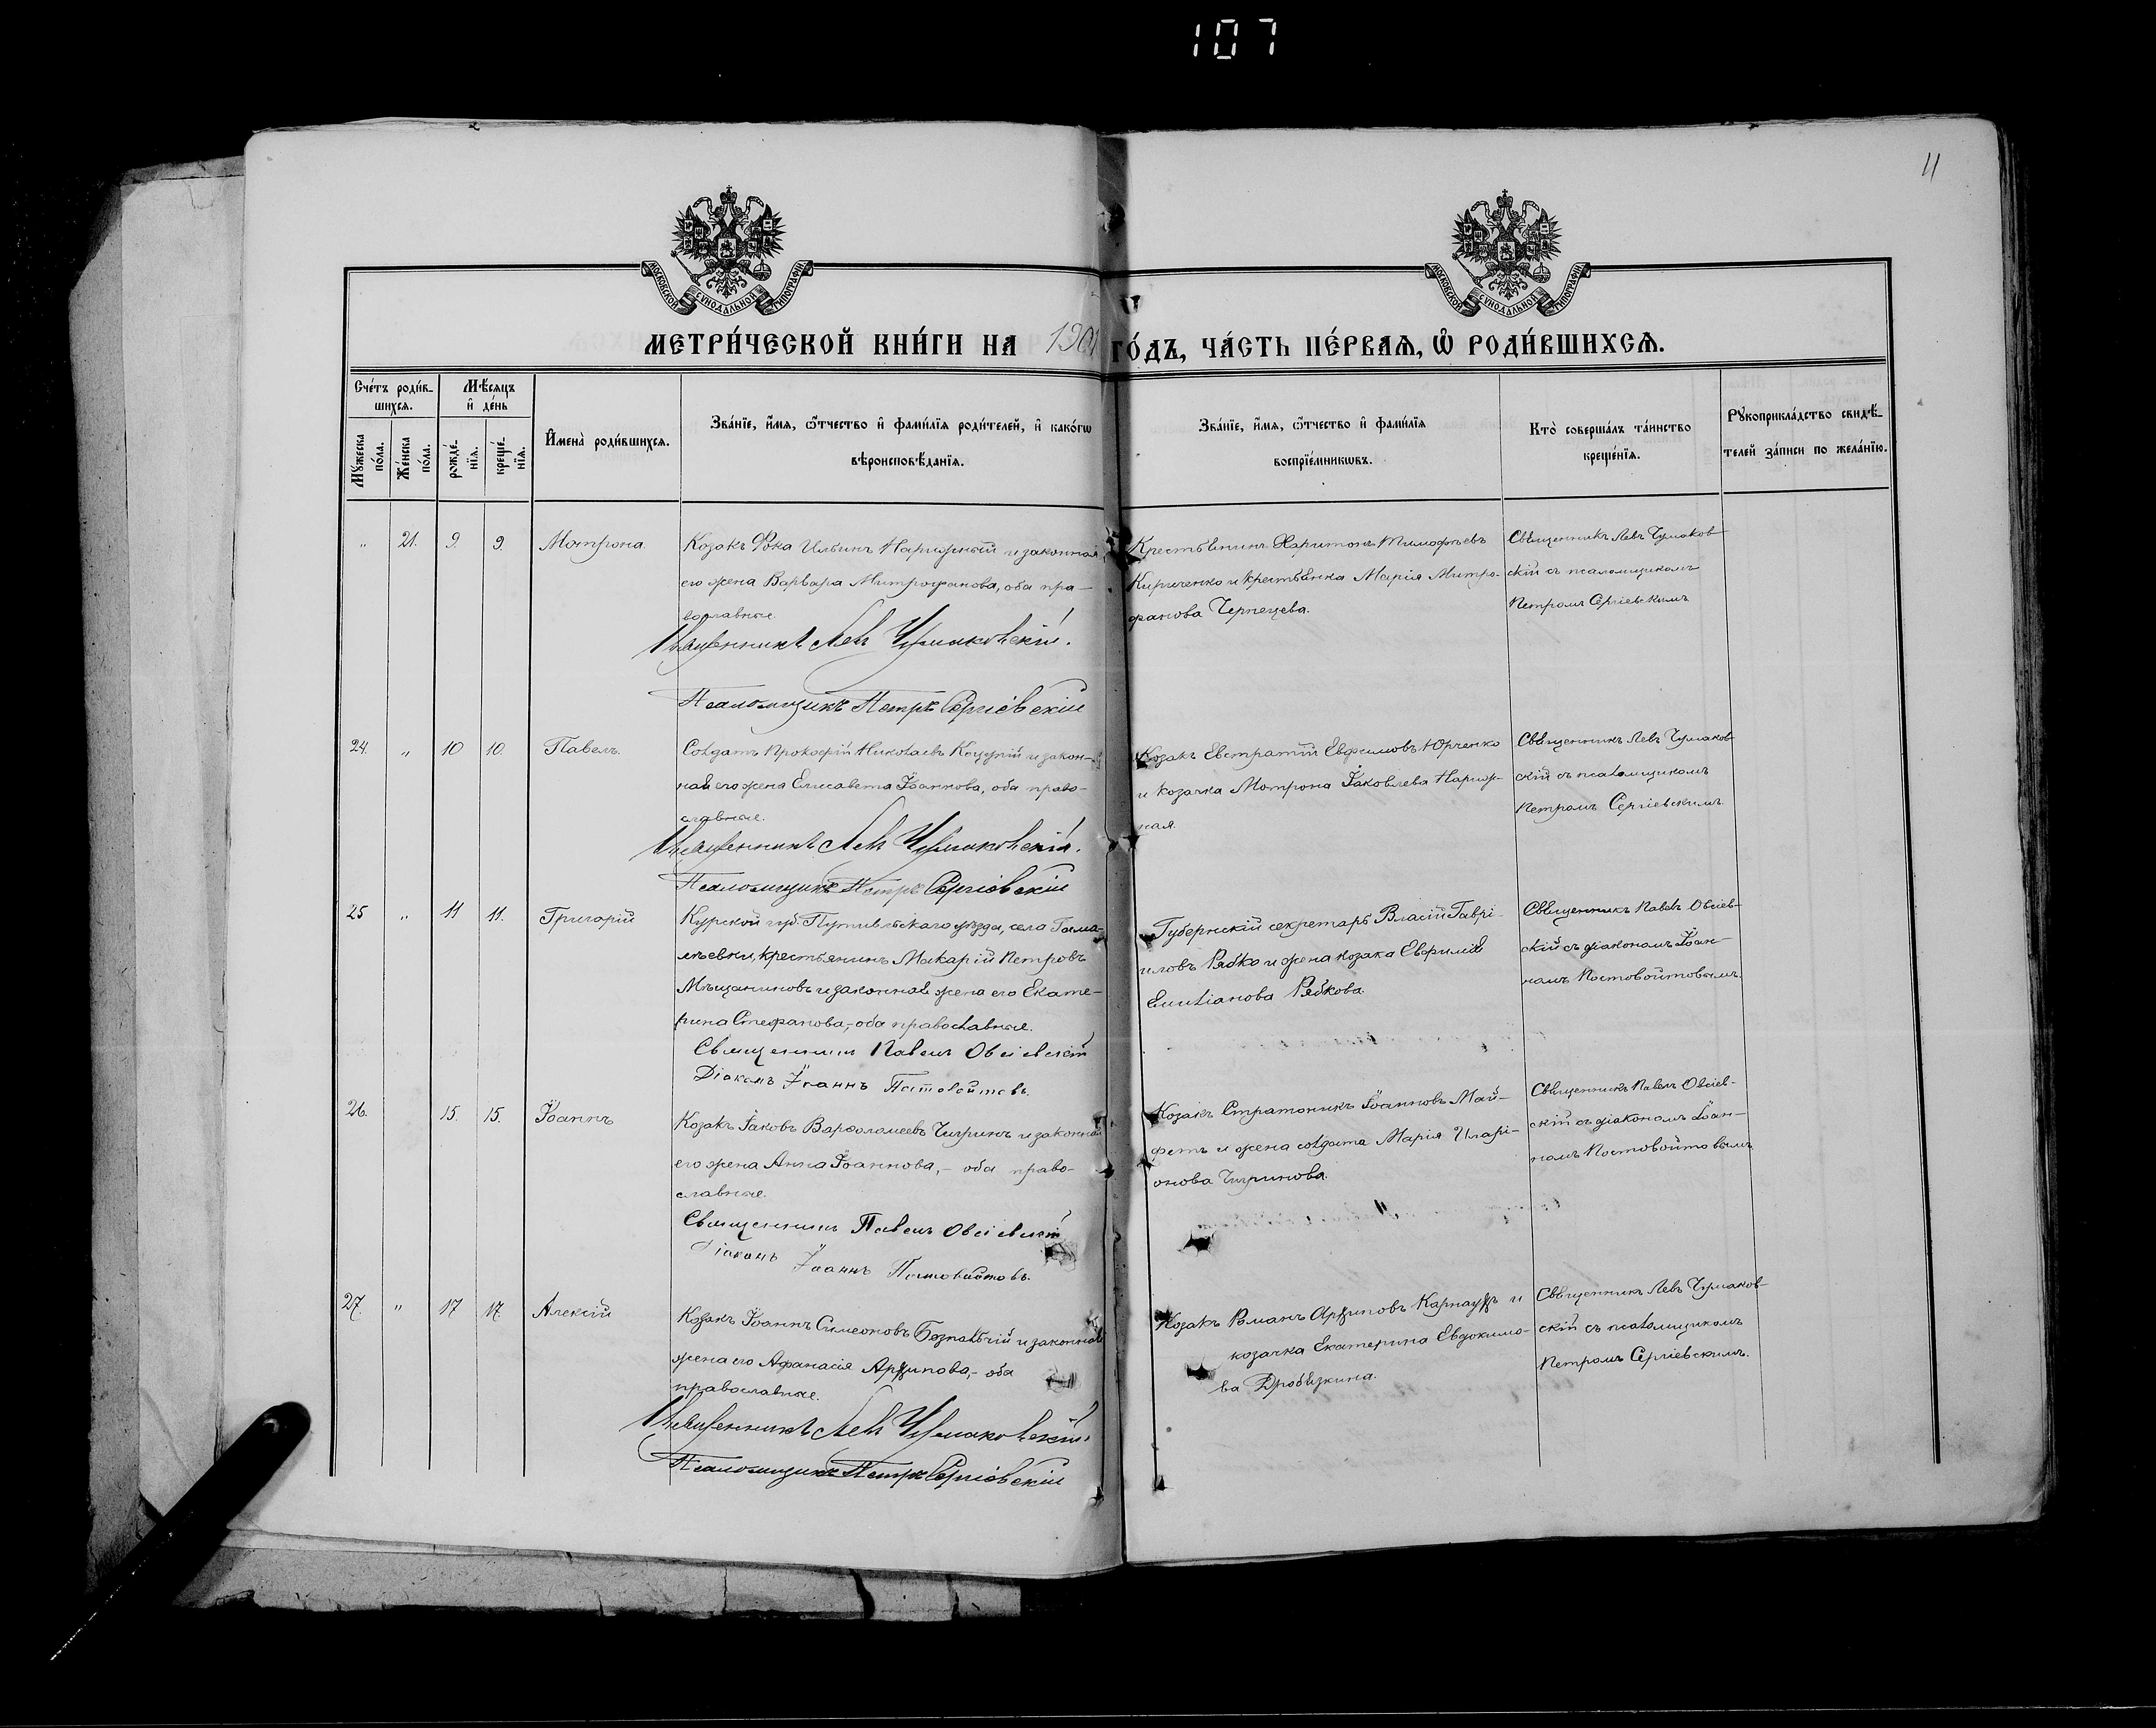 107
11
МОСКОВСКОЙ СѴНОДАЛЬНОЙ ТИПОГРАФІИ
МОСКОВСКОЙ СѴНОДАЛЬНОЙ ТИПОГРАФІИ
МЕТРИ́ЧЕСКОЙ КНИ́ГИ НА 1901 ГО́ДЪ, ЧА́СТЬ ПЕ́РВАѦ, Ѡ҆ РОДИ́ВШИХСѦ.
Сче́тъ роди́в-
шихсѧ.
Мꙋ́жеска по́ла.
Же́нска по́ла.
Мѣ́сѧцъ
и҆ де́нь
рожде́-
нїѧ.
креще́-
нїѧ.
И҆мена̀ роди́вшихсѧ.
Зва́нїе, и҆́мѧ, ѻ҆́тчество и҆ фами́лїѧ роди́телей, и҆ како́гѡ
вѣроисповѣ́данїѧ.
Зва́нїе, и҆́мѧ, ѻ҆́тчество и҆ фами́лїѧ
воспрїе́мникѡвъ.
Кто̀ соверша́лъ та́инство
креще́нїѧ.
Рꙋкоприкла́дство свидѣ́-
телей за́писи по жела́нїю.
„ 21. 9. 9. Матрона.
Козакъ Фока Ильинъ Нарижный и законная
его жена Варвара Митрофанова, оба пра-
вославные.
Священникъ Левъ Чумаковскій.
Псаломщикъ Петръ Сергіевскій
Крестьянинъ Харитонъ Тимофѣевъ
Кириченко и крестьянка Марія Митро-
фанова Чернецева.
Священникъ Левъ Чумаков-
скій съ псаломщикомъ
Петромъ Сергіевскимъ
24. „ 10 10. Павелъ.
Солдатъ Прокофій Николаевъ Куцупій и закон-
ная его жена Елисавета Іоаннова, оба право-
славные.
Священникъ Левъ Чумаковскій.
Псаломщикъ Петръ Сергіевскій
Козакъ Евстратій Евфимовъ Юрченко
и козачка Матрона Іаковлева Нариж-
ная.
Священникъ Левъ Чумаков-
скій съ псаломщикомъ
Петромъ Сергіевскимъ.
25 „ 11 11. Григорій
Курской губ. Путивльскаго уѣзда, села
крестьянинъ Макарій Петровъ
Мѣщаниновъ и законная жена его Екате-
рина Стефанова,- оба православные.
Священникъ Павелъ Овсіевскій
Діаконъ Іоаннъ Постовойтовъ.
Губернскій секретарь Власій Гаврі-
иловъ Рябко и жена козака Евфимія
Емиліанова Рябкова.
Священникъ Павелъ Овсіев-
скій съ діакономъ Іоан-
номъ Постовойтовымъ.
26. 15. 15. Іоаннъ
Козакъ Іаковъ Варфоломеевъ Чигринъ и законная
его жена Анна Іоаннова,- оба право-
славные.
Священникъ Павелъ Овсіевскій
Діаконъ Іоаннъ Постовойтовъ.
Козакъ Стратоникъ Іоанновъ Май-
фетъ и жена солдата Марія Иларі-
онова Чигринова.
Священникъ Павелъ Овсіев-
скій съ діакономъ Іоан-
номъ Постовойтовымъ
27. „ 17 17. Алексій
Козакъ Іоаннъ Симеоновъ и законная
жена его Афанасія Архипова,- оба
православные.
Священникъ Левъ Чумаковскій.
Псаломщикъ Петръ Сергіевскій
Козакъ Романъ Архиповъ Карнаухъ и
козачка Екатерина Евдокимо-
ва Дробязкина.
Священникъ Левъ Чумаков-
скій съ псаломщикомъ
Петромъ Сергіевскимъ.